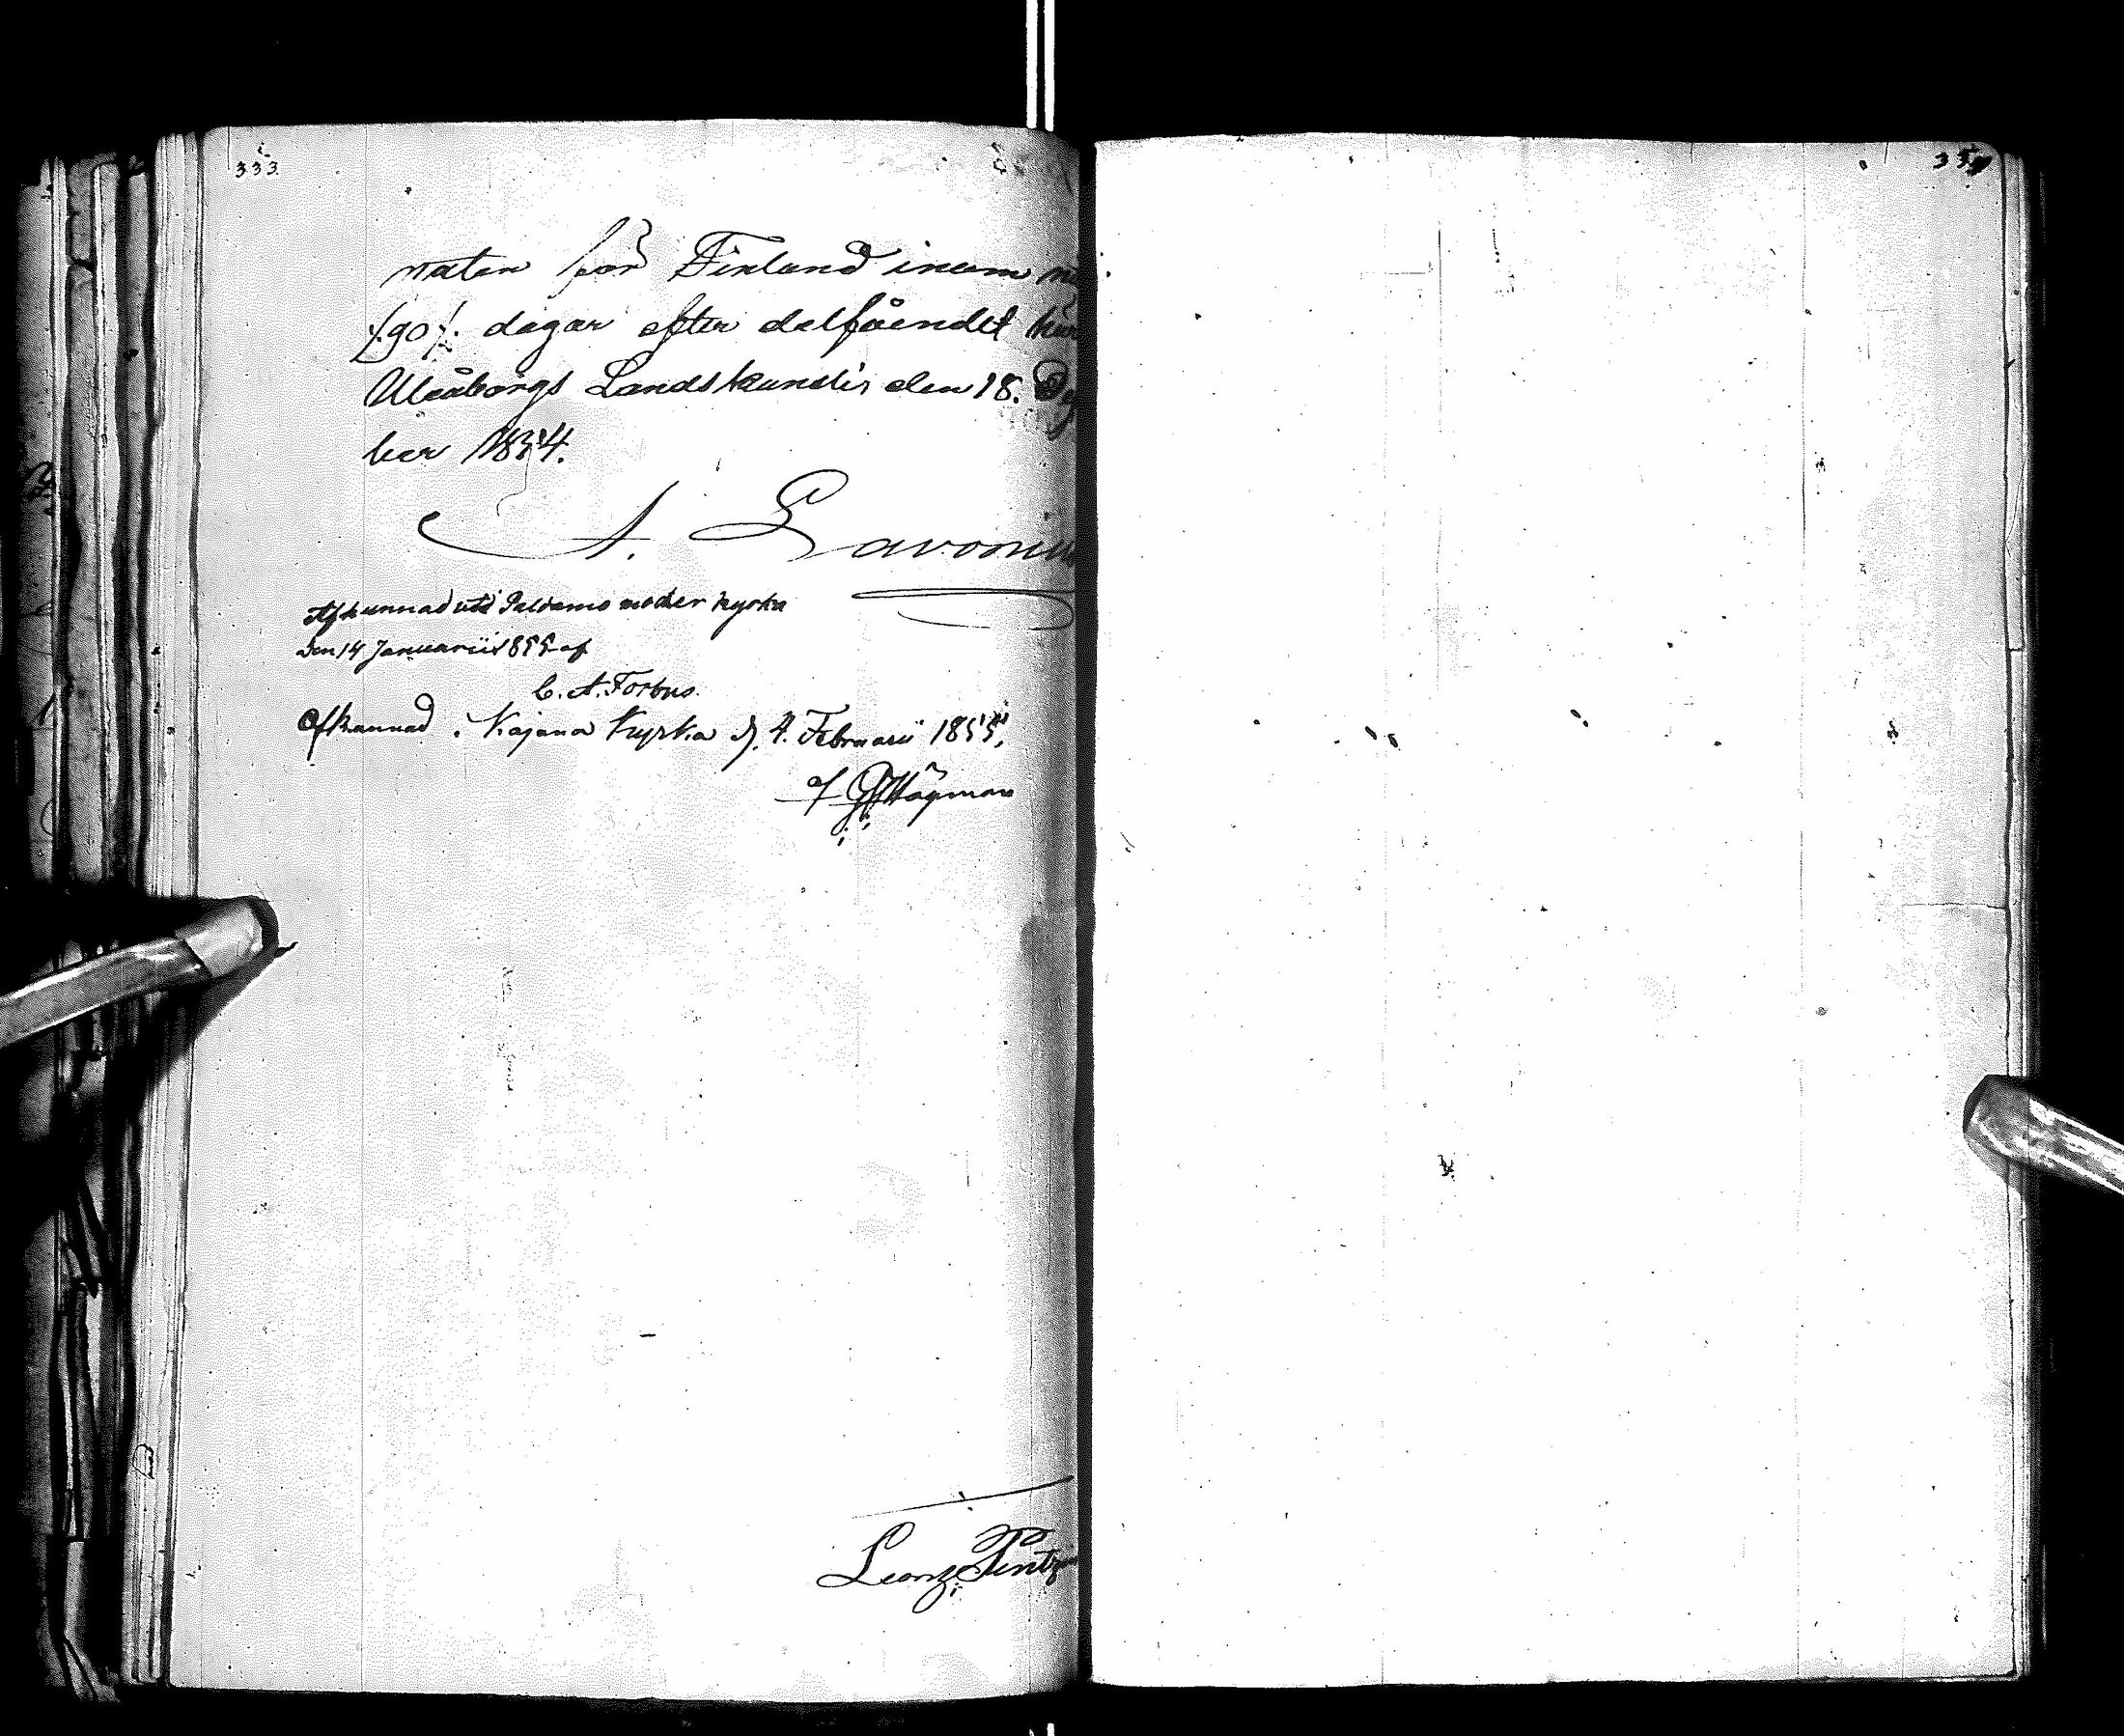 333.
naten för Finland inom
/.90/. dagar efter delfåendet
Uleåborgs Landskansli den 18.
ber 1854.
A. Lavonius
Afkunnad uti Paldamo moder kyrka
den 14 Januarii 1855 af
C. A. Forbus.
Afkunnad i Kajana Kyrka d. 4. Februarii 1855,
af Högman
334